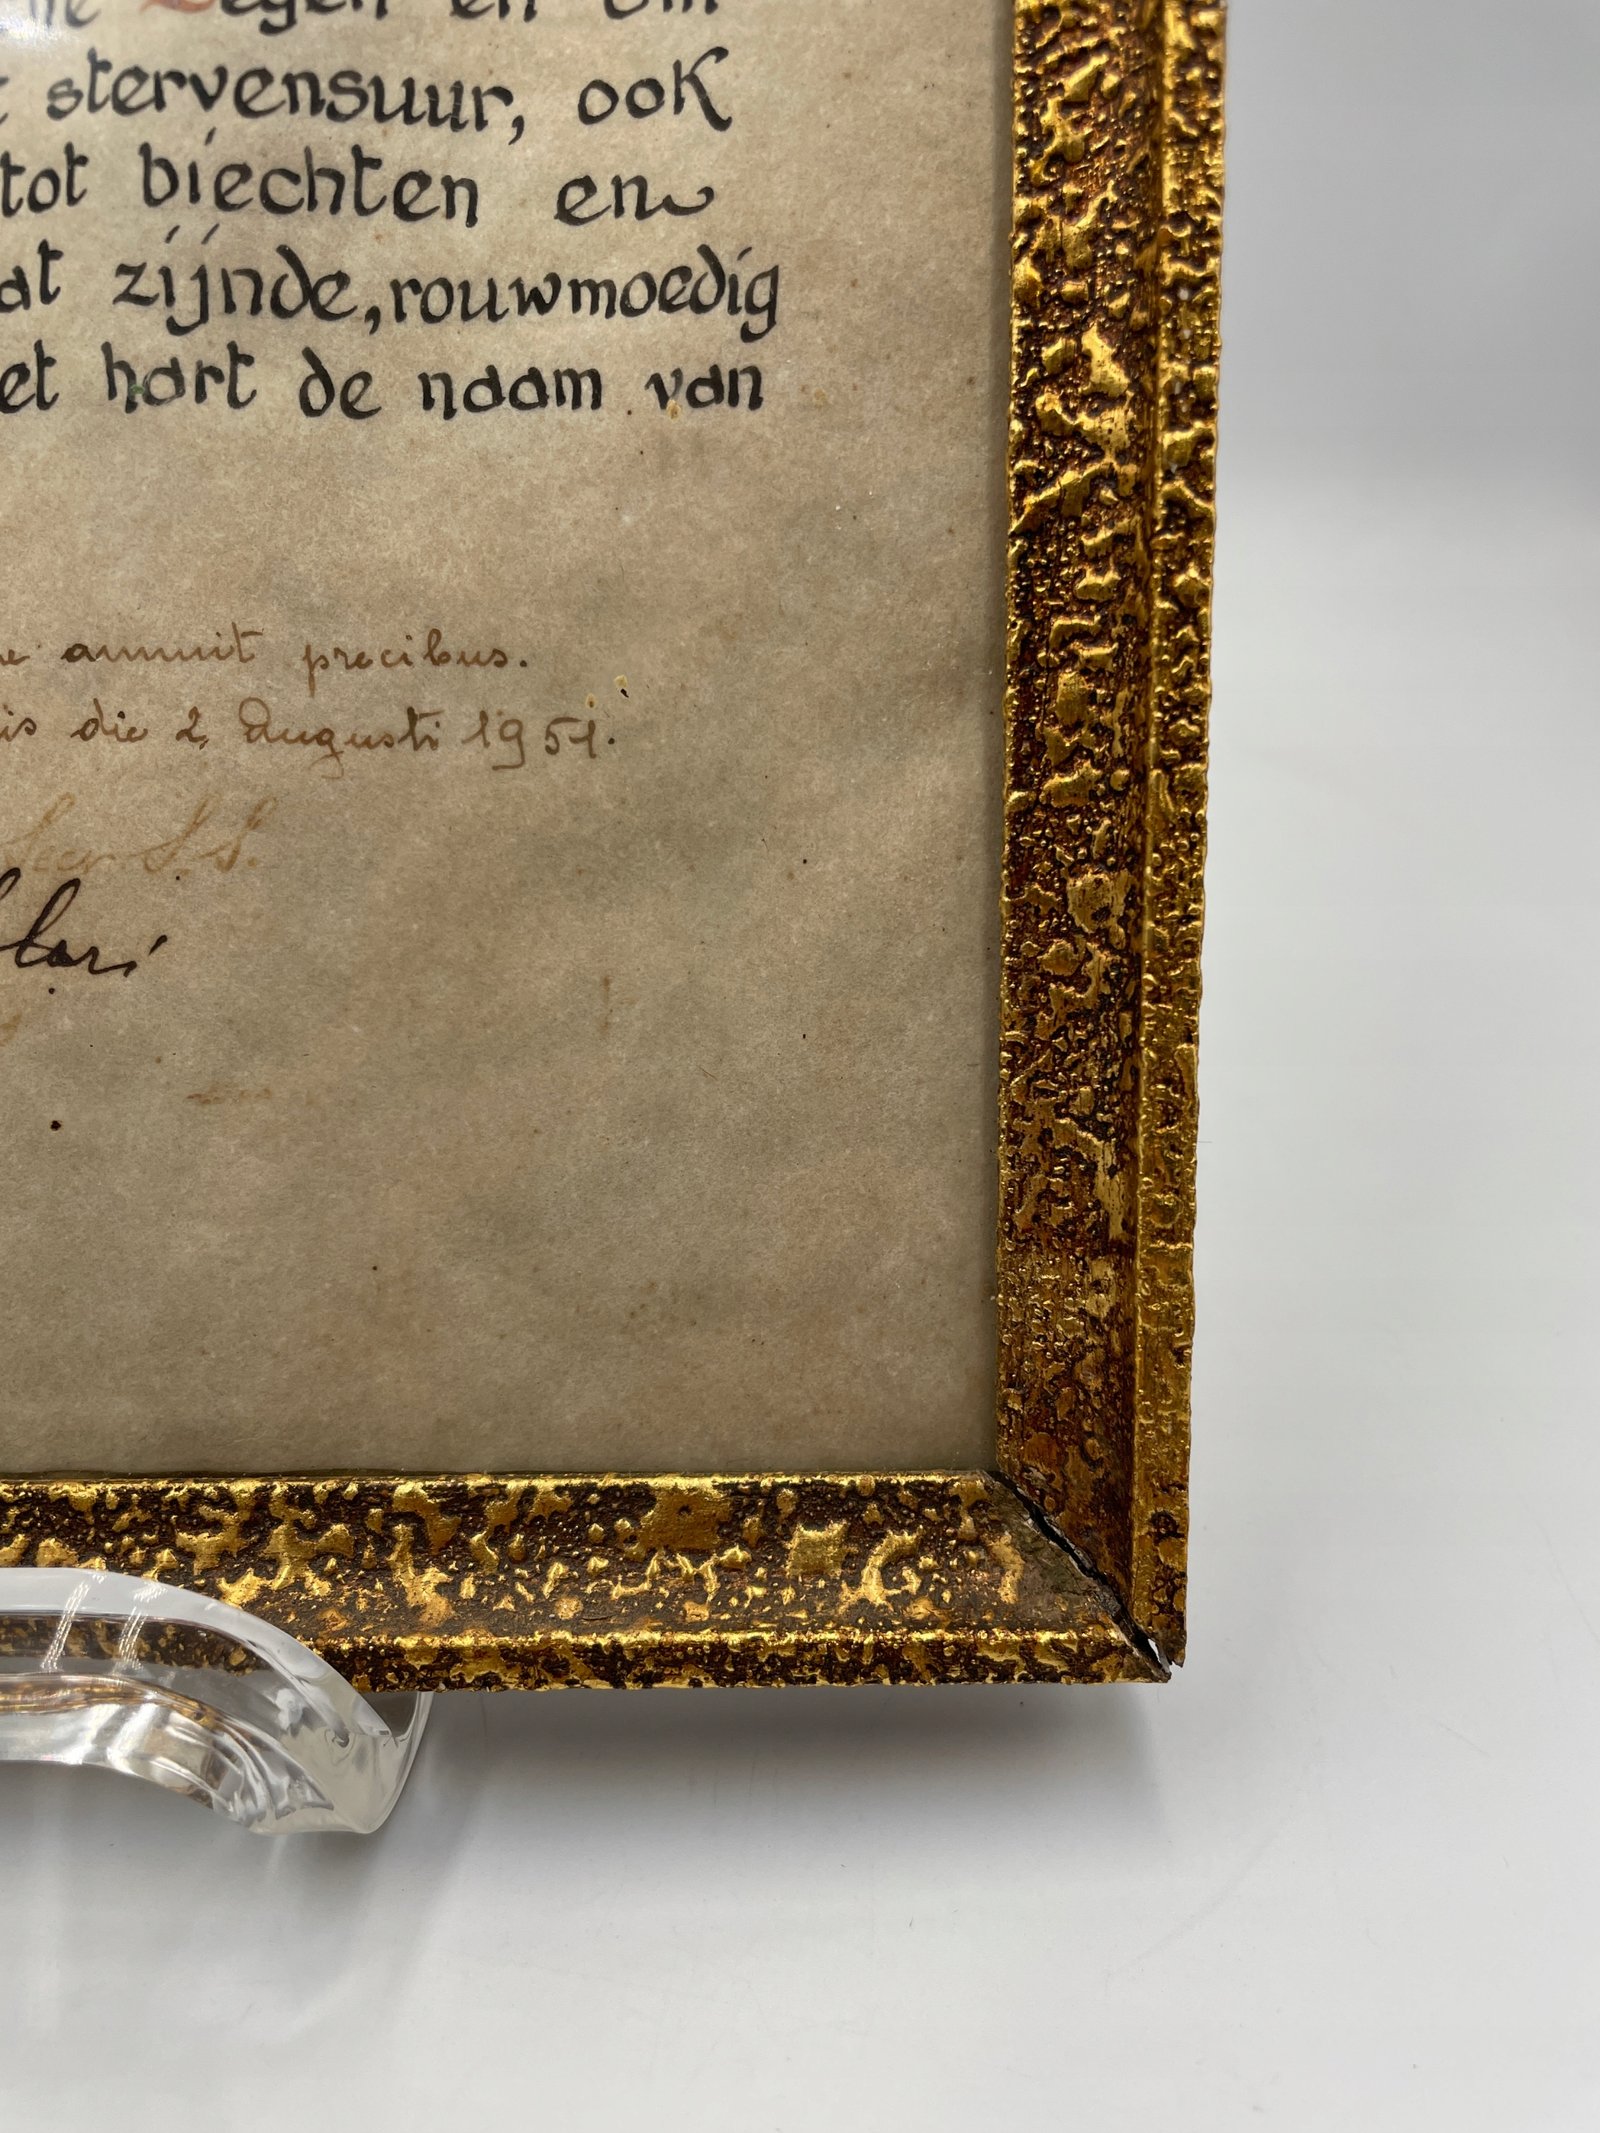 Zegen en om
stervensuur, ook
tot biechten en
at zijnde, rouwmoedig
et hart de naam van
annuit precibus.
is die 2 Augusti 1951.
S. S.